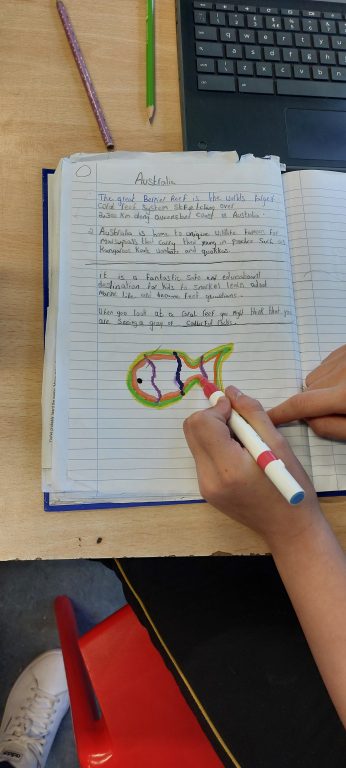 Australia
The great Berrier Reef is the worlds largest
Coral reef System Stretching over
2,300 km along queensland coast is Australia.
Australia is home to unique wildlife famous for
marsupials that carry their young in pouches Such as
Kangaroos Koala wombats and quokkas.
it is a Fantastic Safe and educational
destination for kids to snorkel learn about
marine life and become reef guardians.
When you look at a coral reef you might think that you
are seeing a group of Colourful